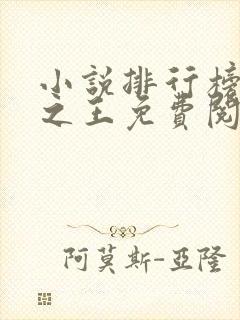 小說排行榜
之王免費閱
阿莫斯-亞隆